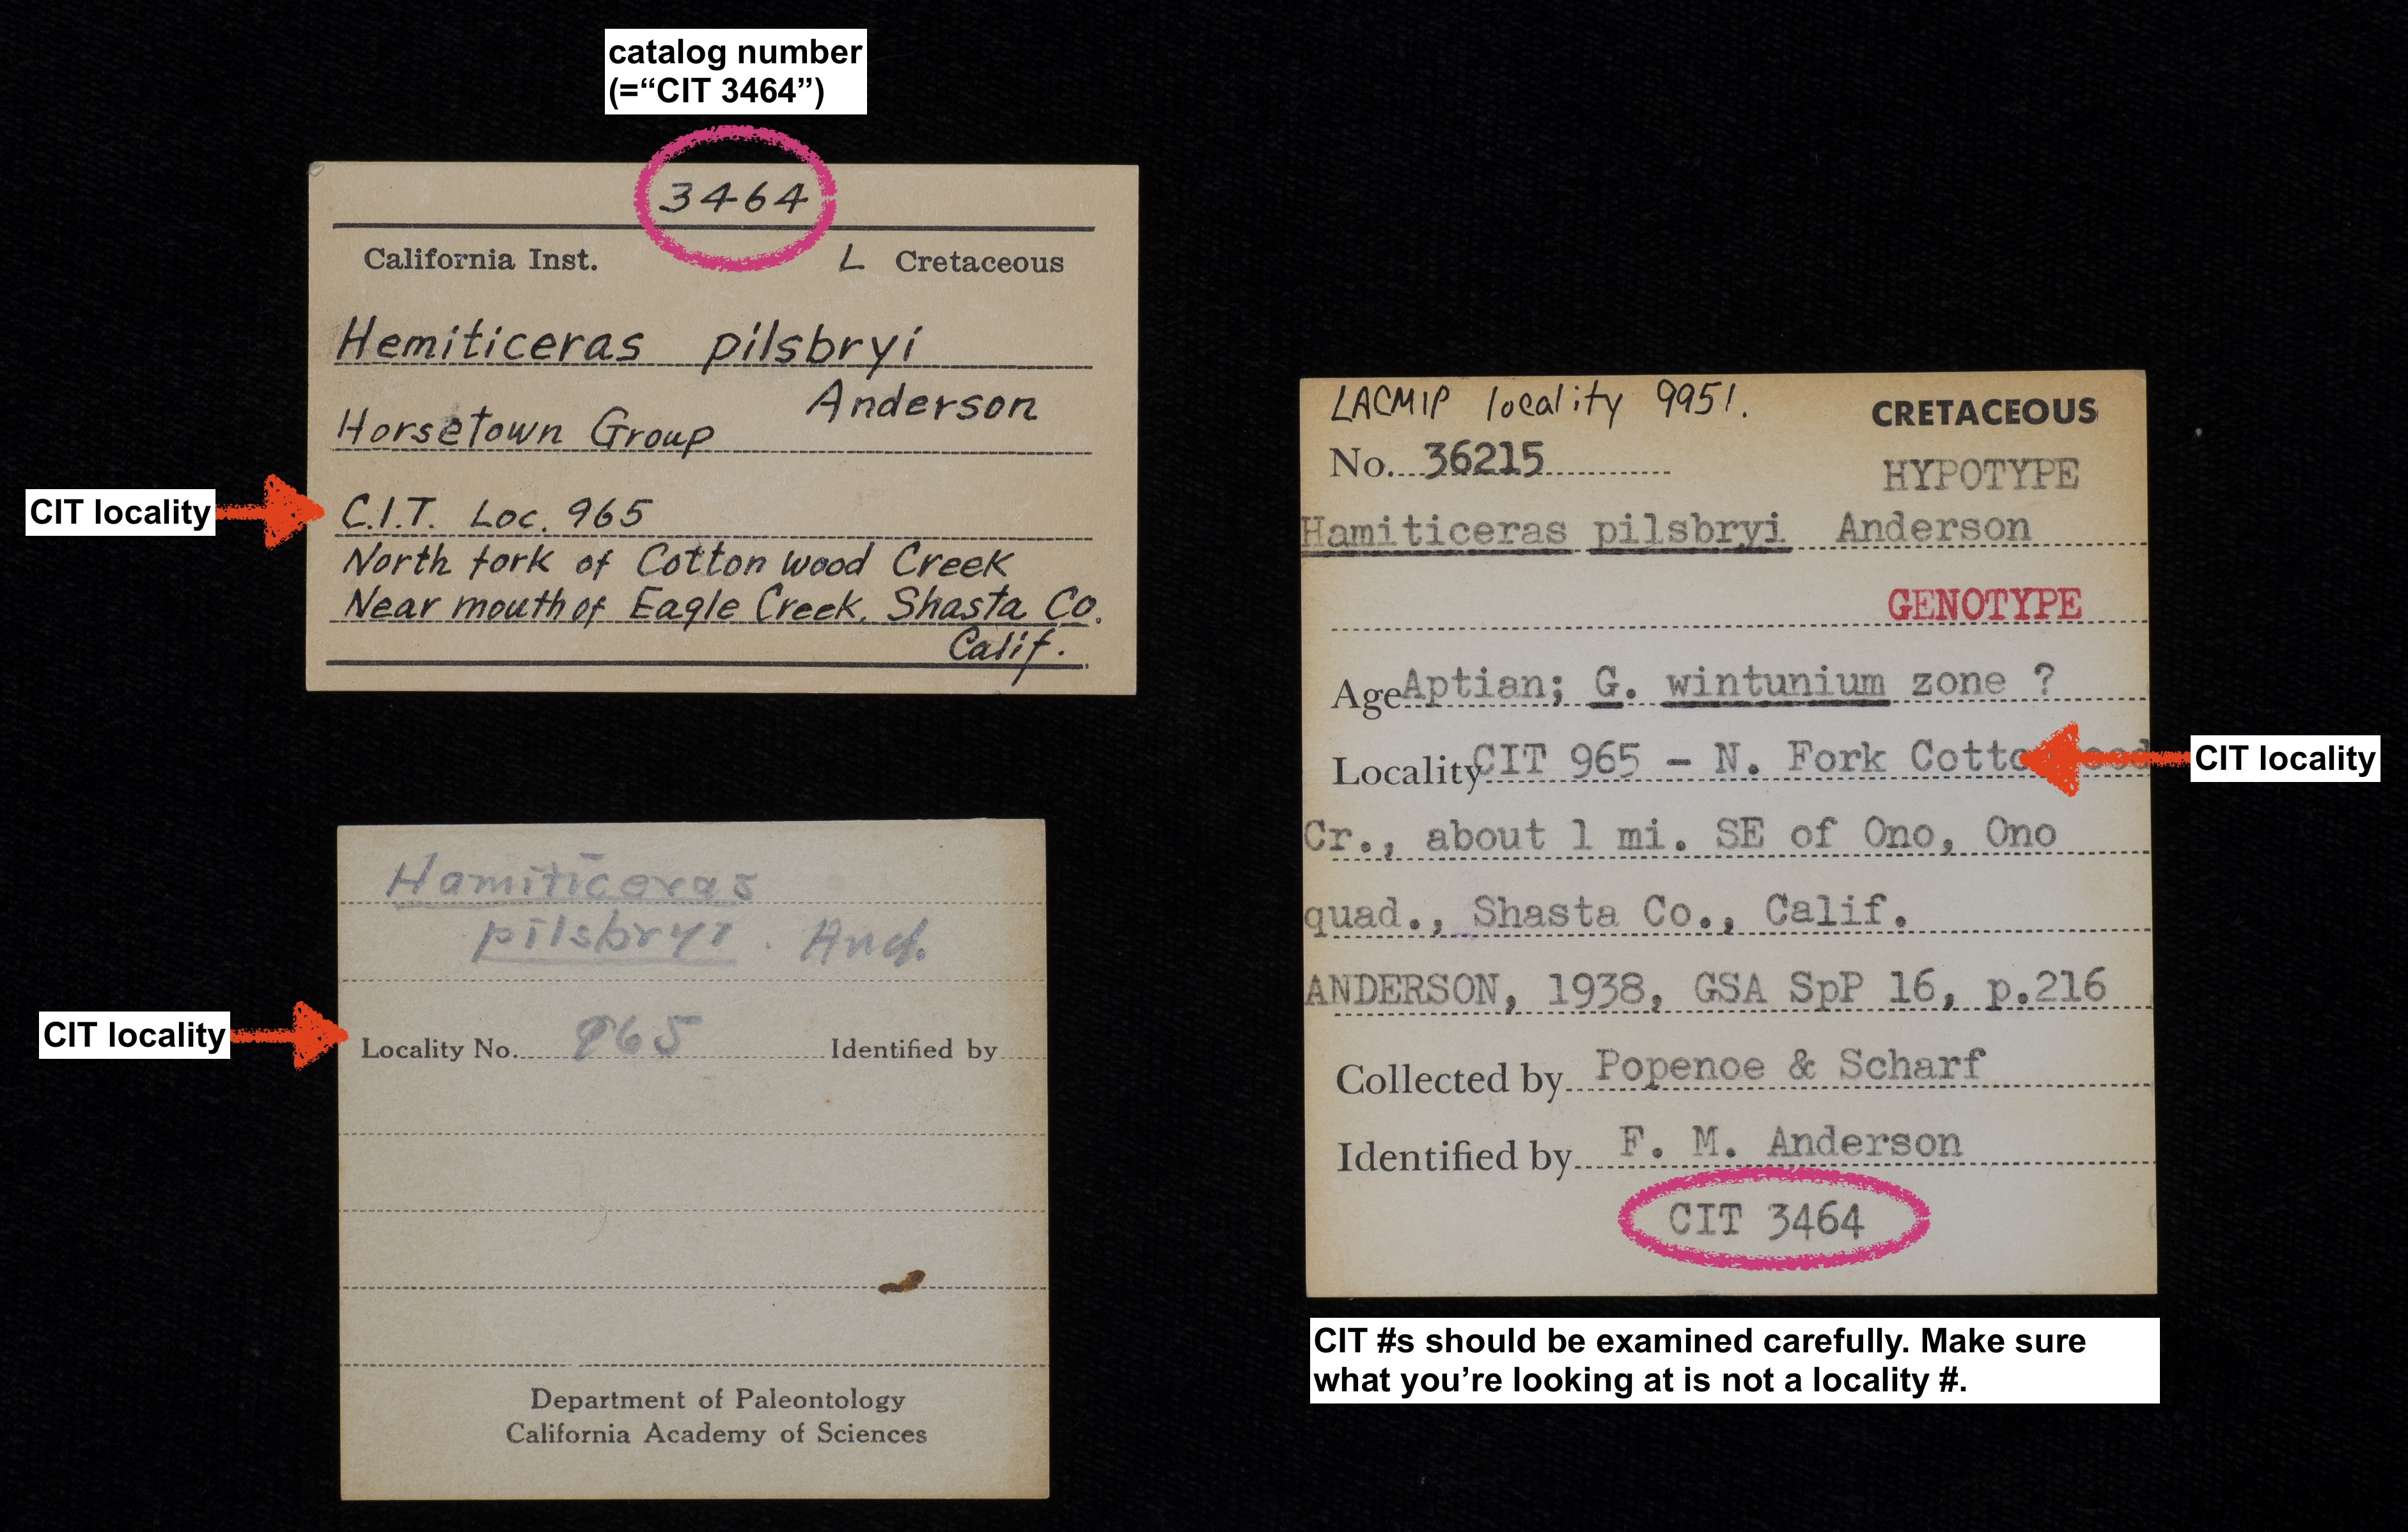 catalog number
(=“CIT 3464”)
3464
California Inst. L Cretaceous
Hemiticeras pilsbryi
Anderson
Horsetown Group
CIT locality
C.I.T. Loc. 965
North fork of Cotton wood Creek
Near mouth of Eagle Creek, Shasta Co.
Calif.
Hamiticeras
pilsbryi. And.
CIT locality
Locality No. 965 Identified by
Department of Paleontology
California Academy of Sciences
LACMIP locality 9951.
CRETACEOUS
No. 36215
HYPOTYPE
Hamiticeras pilsbryi Anderson
GENOTYPE
Age Aptian; G. wintunium zone ?
Locality CIT 965 - N. Fork
CIT locality
Cr., about 1 mi. SE of Ono, Ono
quad., Shasta Co., Calif.
ANDERSON, 1938, GSA SpP 16, p.216
Collected by Popenoe & Scharf
Identified by F. M. Anderson
CIT 3464
CIT #s should be examined carefully. Make sure
what you’re looking at is not a locality #.